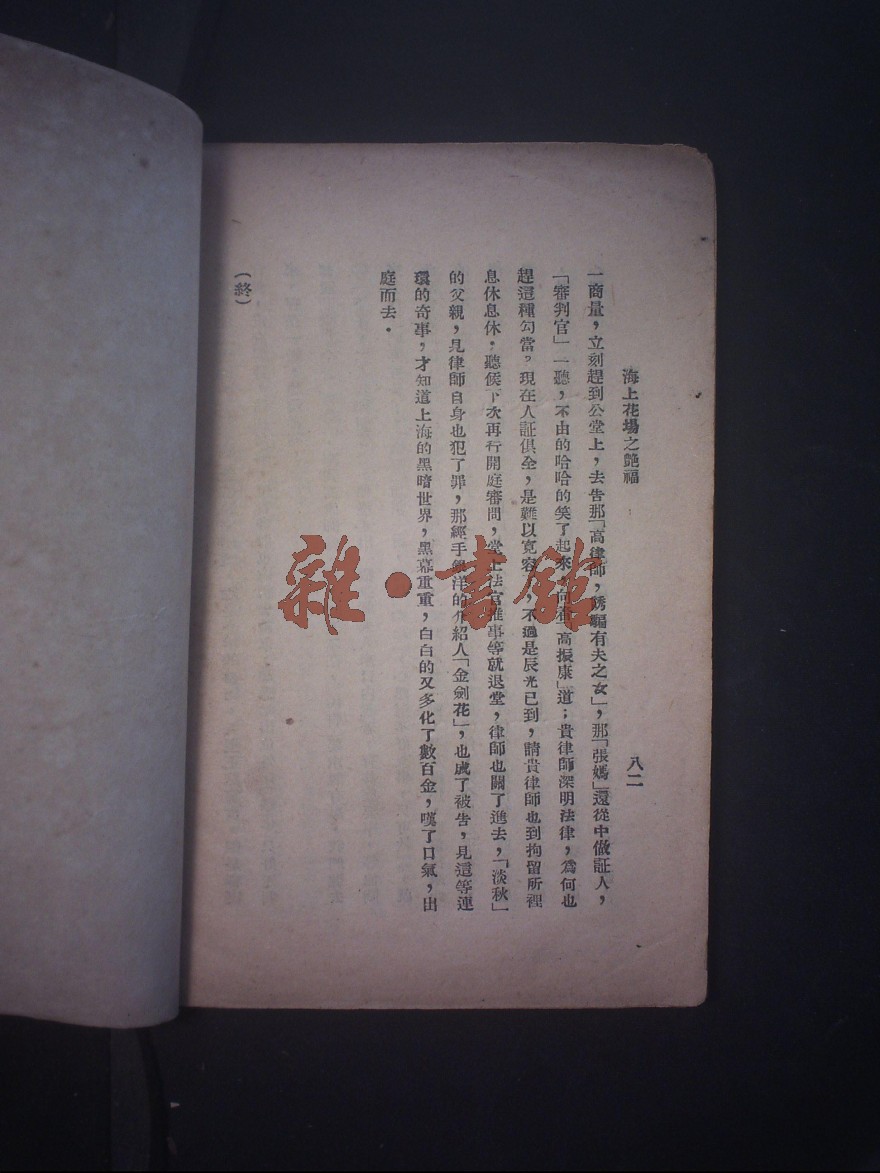 海上花場之艷福
八二
一商量，立刻趕到公堂上，去告那「高律師，誘騙有夫之女」，那「張媽」還從中做証人，
「審判官」一聽，不由的哈哈的笑了起來，向着「高振康」道；貴律師深明法律，爲何也
趕這種勾當？現在人証俱全，是難以寬容，不過是辰光已到，請貴律師也到拘留所裡
息休息休．聽候下次再行開庭審問，堂上法官推事等就退堂，律師也關了進去，「淡秋」
的父親，見律師自身也犯了罪，那經手洋的介紹人「金劍花」，也成了被告，見這等連
環的奇事，才知道上海的黑暗世界，黑幕重重，白白的又多化了數百金，嘆了口氣，出
庭而去．
（終）
雜·書館